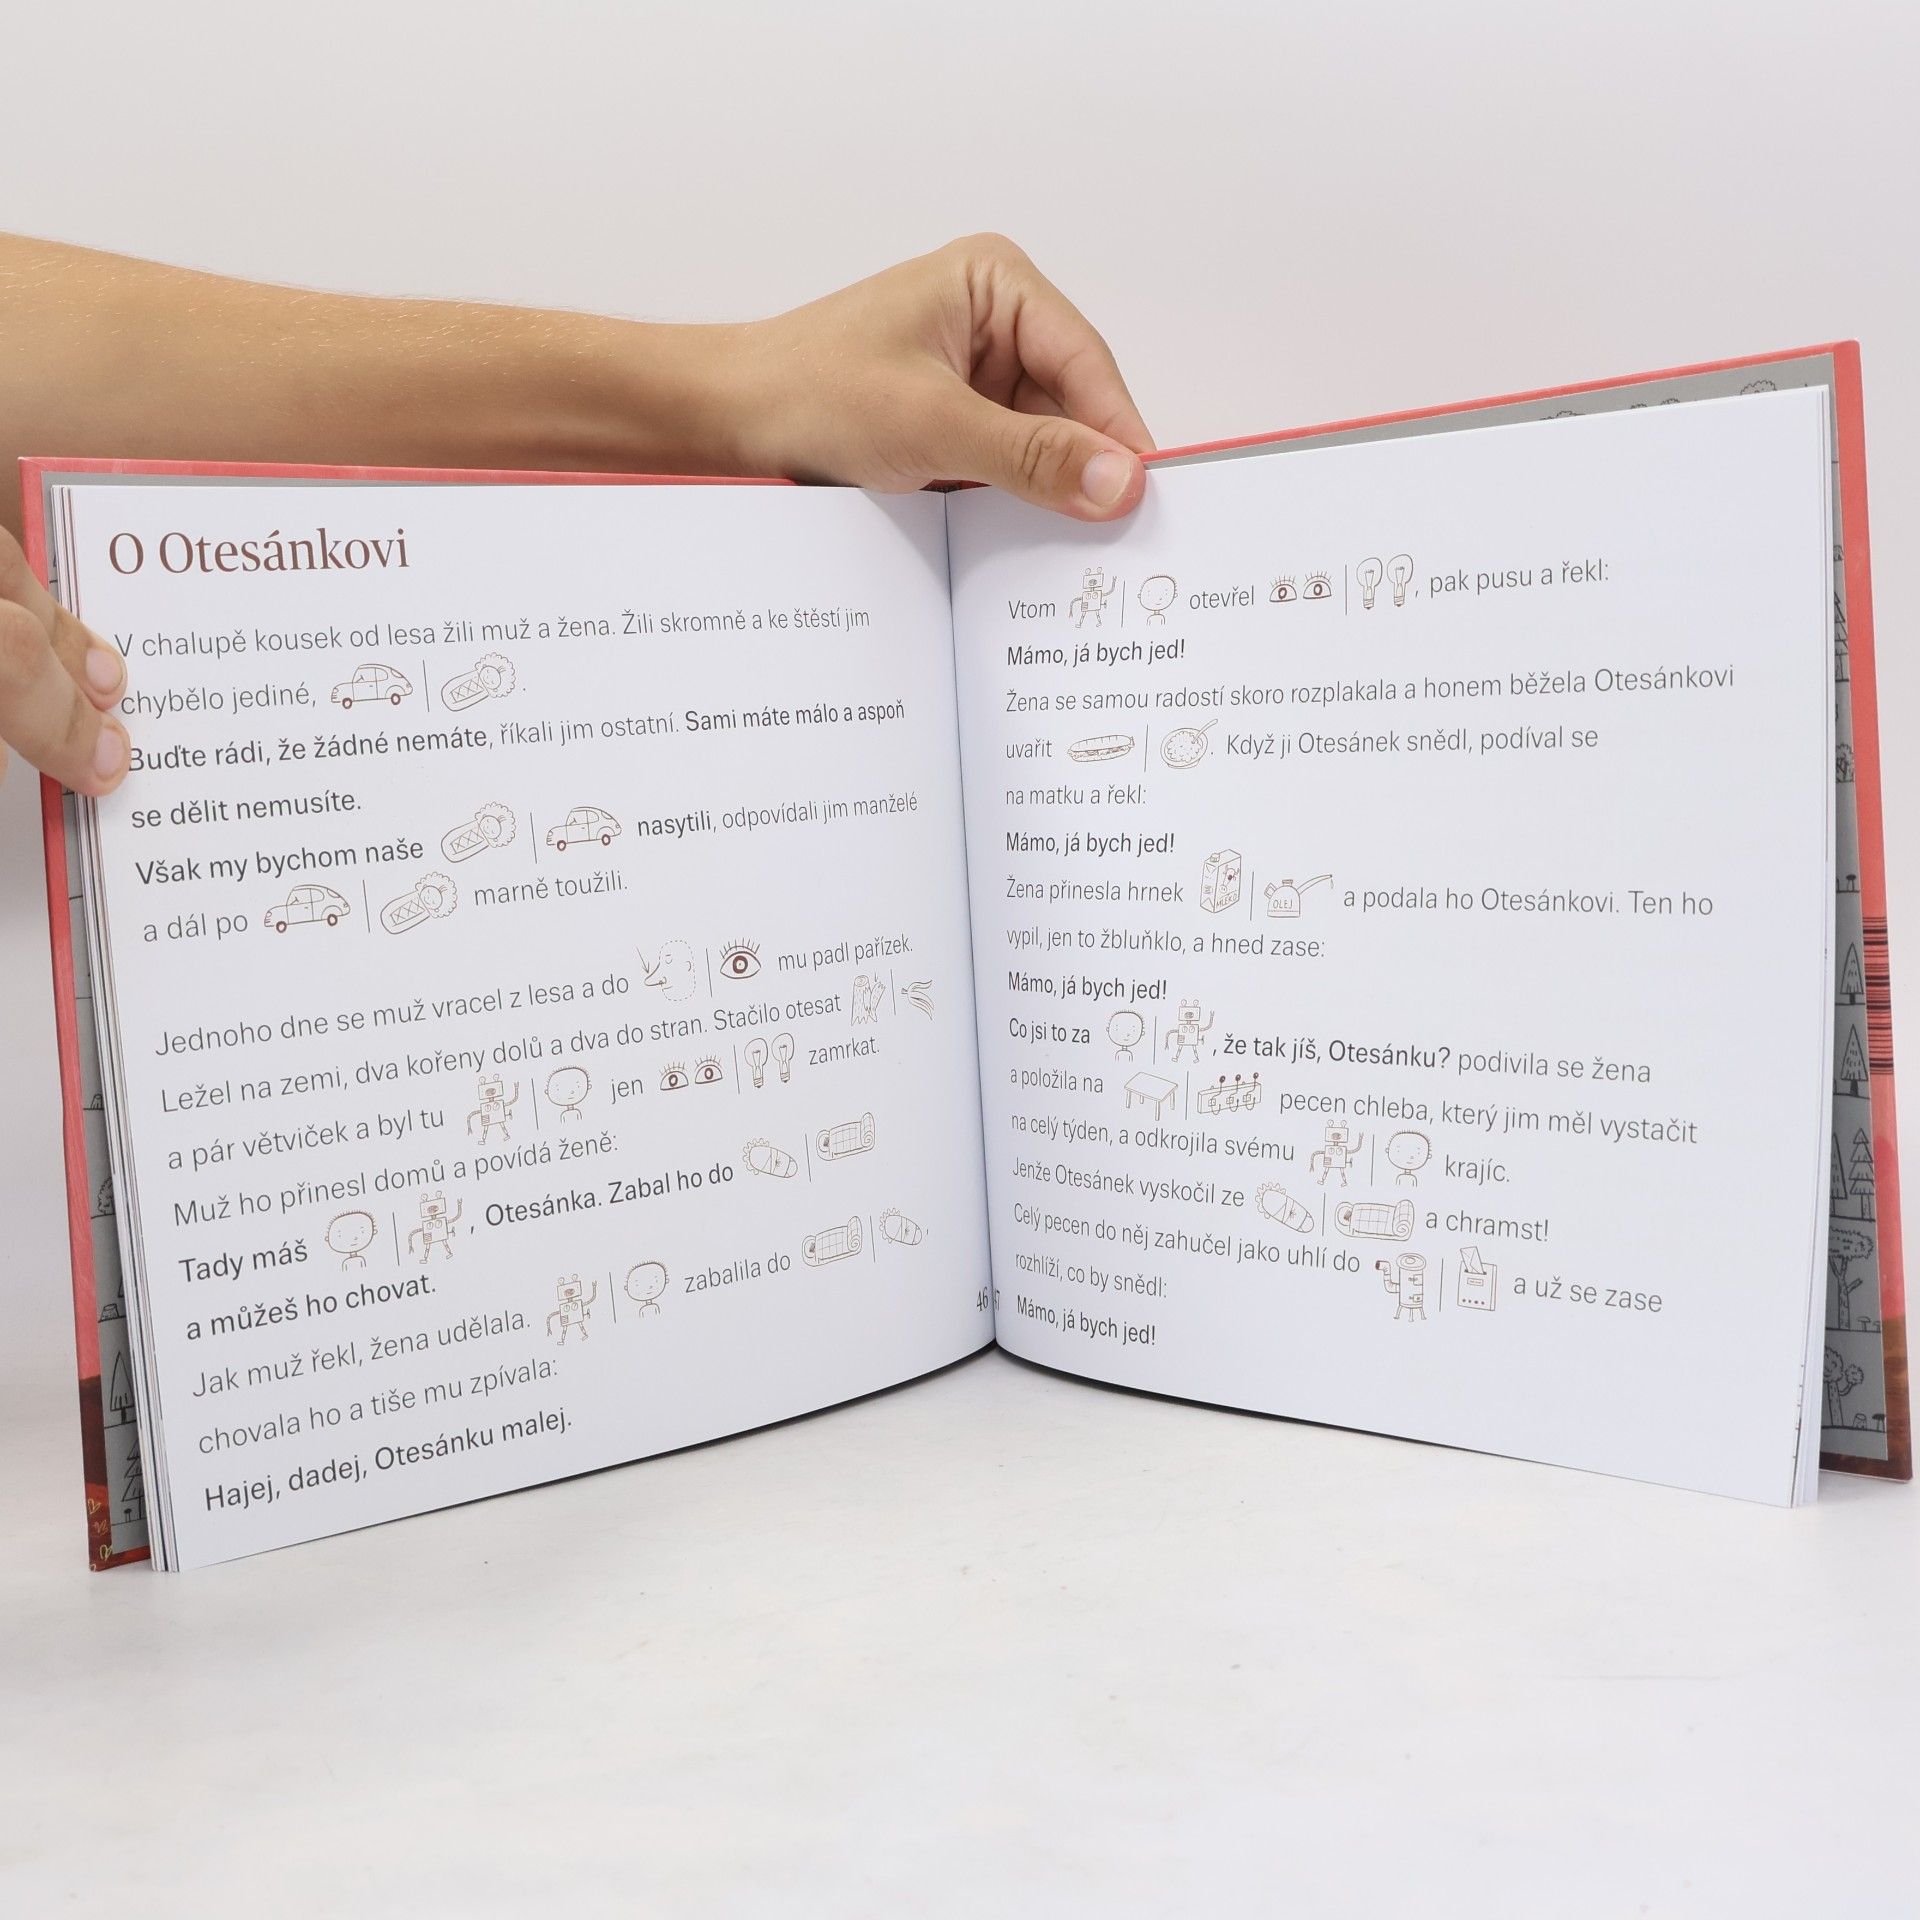 O Otesánkovi
V chalupě kousek od lesa žili muž a žena. Žili skromně a ke štěstí jim
chybělo jediné, .
Buďte rádi, že žádné nemáte, říkali jim ostatní. Sami máte málo a aspoň
se dělit nemusíte.
Však my bychom naše nasytili, odpovídali jim manželé
a dál po marně toužili.
Jednoho dne se muž vracel z lesa a do mu padl pařízek.
Ležel na zemi, dva kořeny dolů a dva do stran. Stačilo otesat
a pár větviček a byl tu jen zamrkat.
Muž ho přinesl domů a povídá ženě:
Tady máš , Otesánka. Zabal ho do
a můžeš ho chovat.
Jak muž řekl, žena udělala. zabalila do ,
chovala ho a tiše mu zpívala:
Hajej, dadej, Otesánku malej.
46
Vtom otevřel , pak pusu a řekl:
Mámo, já bych jed!
Žena se samou radostí skoro rozplakala a honem běžela Otesánkovi
uvařit . Když ji Otesánek snědl, podíval se
na matku a řekl:
Mámo, já bych jed!
Žena přinesla hrnek MLÉKO OLEJ a podala ho Otesánkovi. Ten ho
vypil, jen to žbluňklo, a hned zase:
Mámo, já bych jed!
Co jsi to za , že tak jíš, Otesánku? podivila se žena
a položila na pecen chleba, který jim měl vystačit
na celý týden, a odkrojila svému krajíc.
Jenže Otesánek vyskočil ze a chramst!
Celý pecen do něj zahučel jako uhlí do a už se zase
rozhlíží, co by snědl:
Mámo, já bych jed!